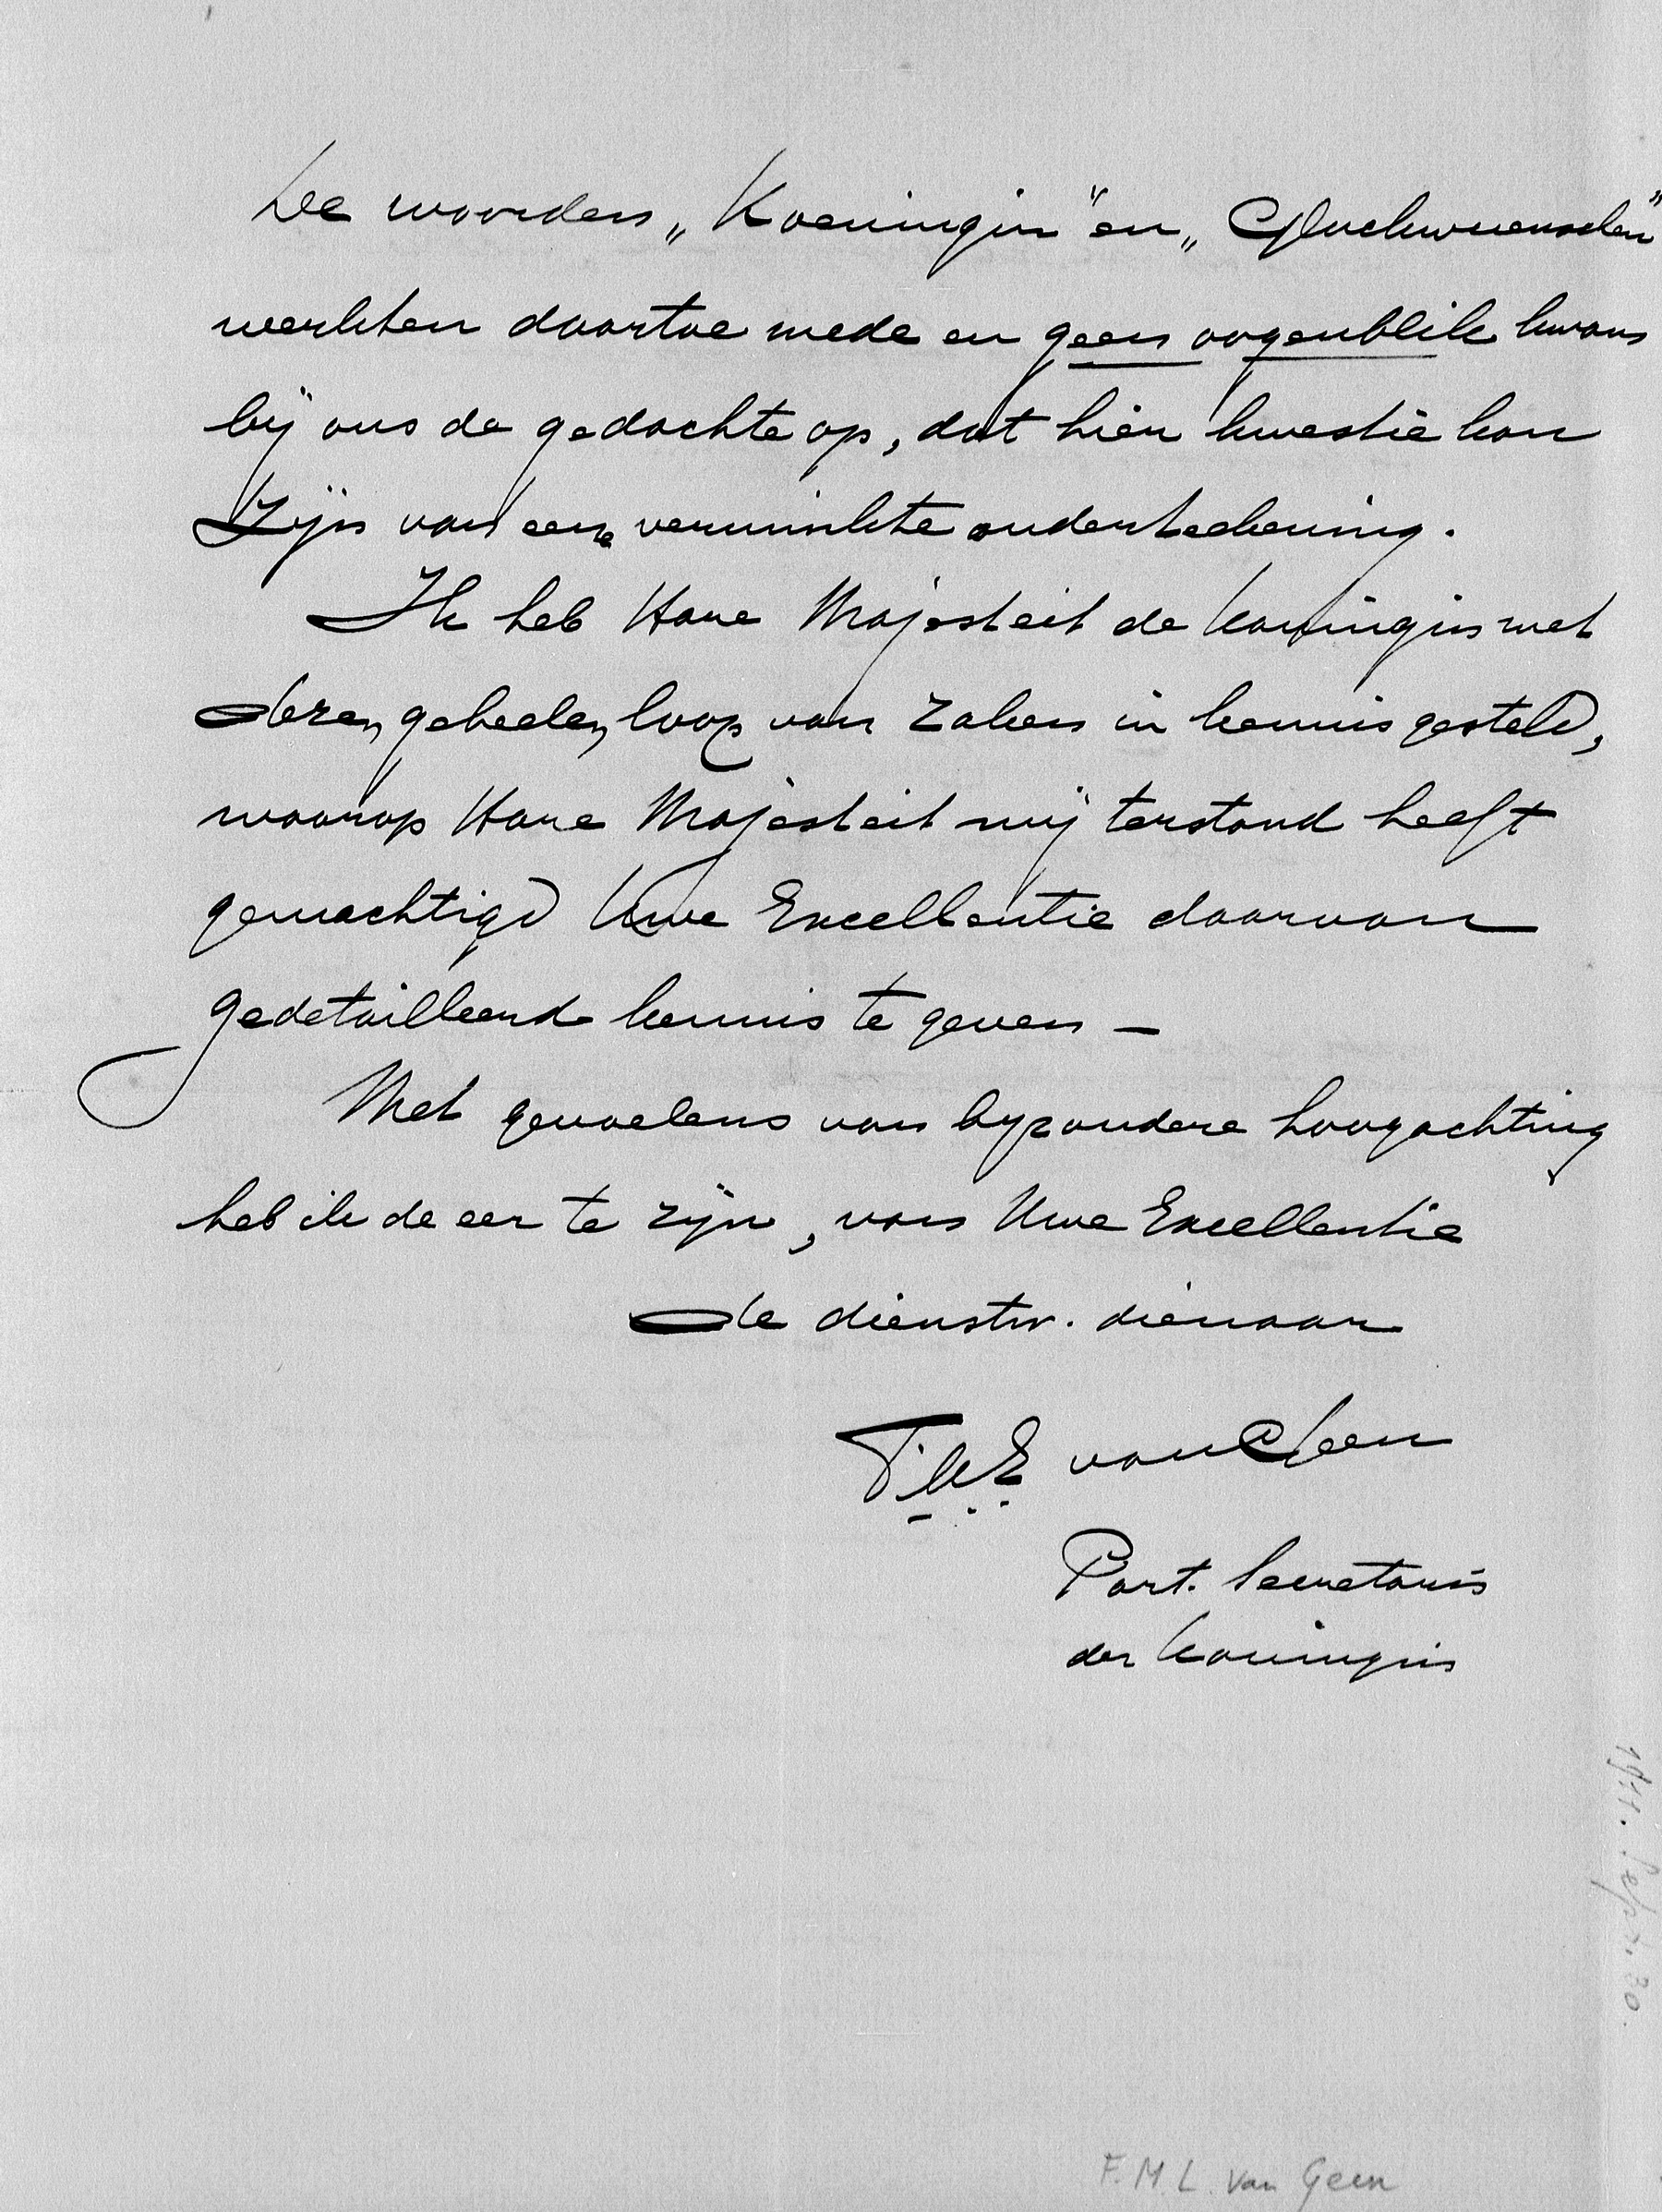 De woorden „Koeningin" en „Gluckwuenschen"
werkten daartoe mede en geen oogenblik kwam
bij ons de gedachte op, dat hier kwestie kon
zijn van eene verminkte onderteekening.
Ik heb Hare Majesteit de Koningin met
dezen geheelen loop van zaken in kennis gesteld,
waarop Hare Majesteit mij terstond heeft
gemachtigd Uwe Excellentie daarvan
gedetailleerd kennis te geven –
Met gevoelens van byzondere hoogachting
heb ik de eer te zijn, van Uwe Excellentie
de dienstw. dienaar
van Geen
Part. Secretaris
der Koningin
1911. Sept. 30.
F. M. L. van Geen